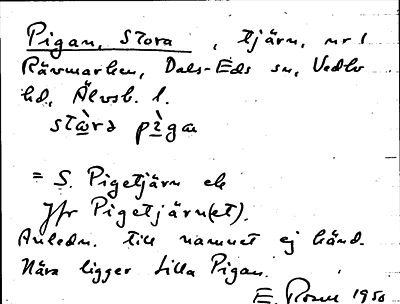 Pigan, Stora, tjärn, nr 1
Rävmarken, Dals-Eds sn, Vedbo
hd, Älvsb. l.
stɷ̀ra pìgan
= S. Pigetjärn ek
Jfr Pigetjärn(et).
Anledn. till namnet ej känd.
Nära ligger Lilla Pigan.
E. Rosell 1950